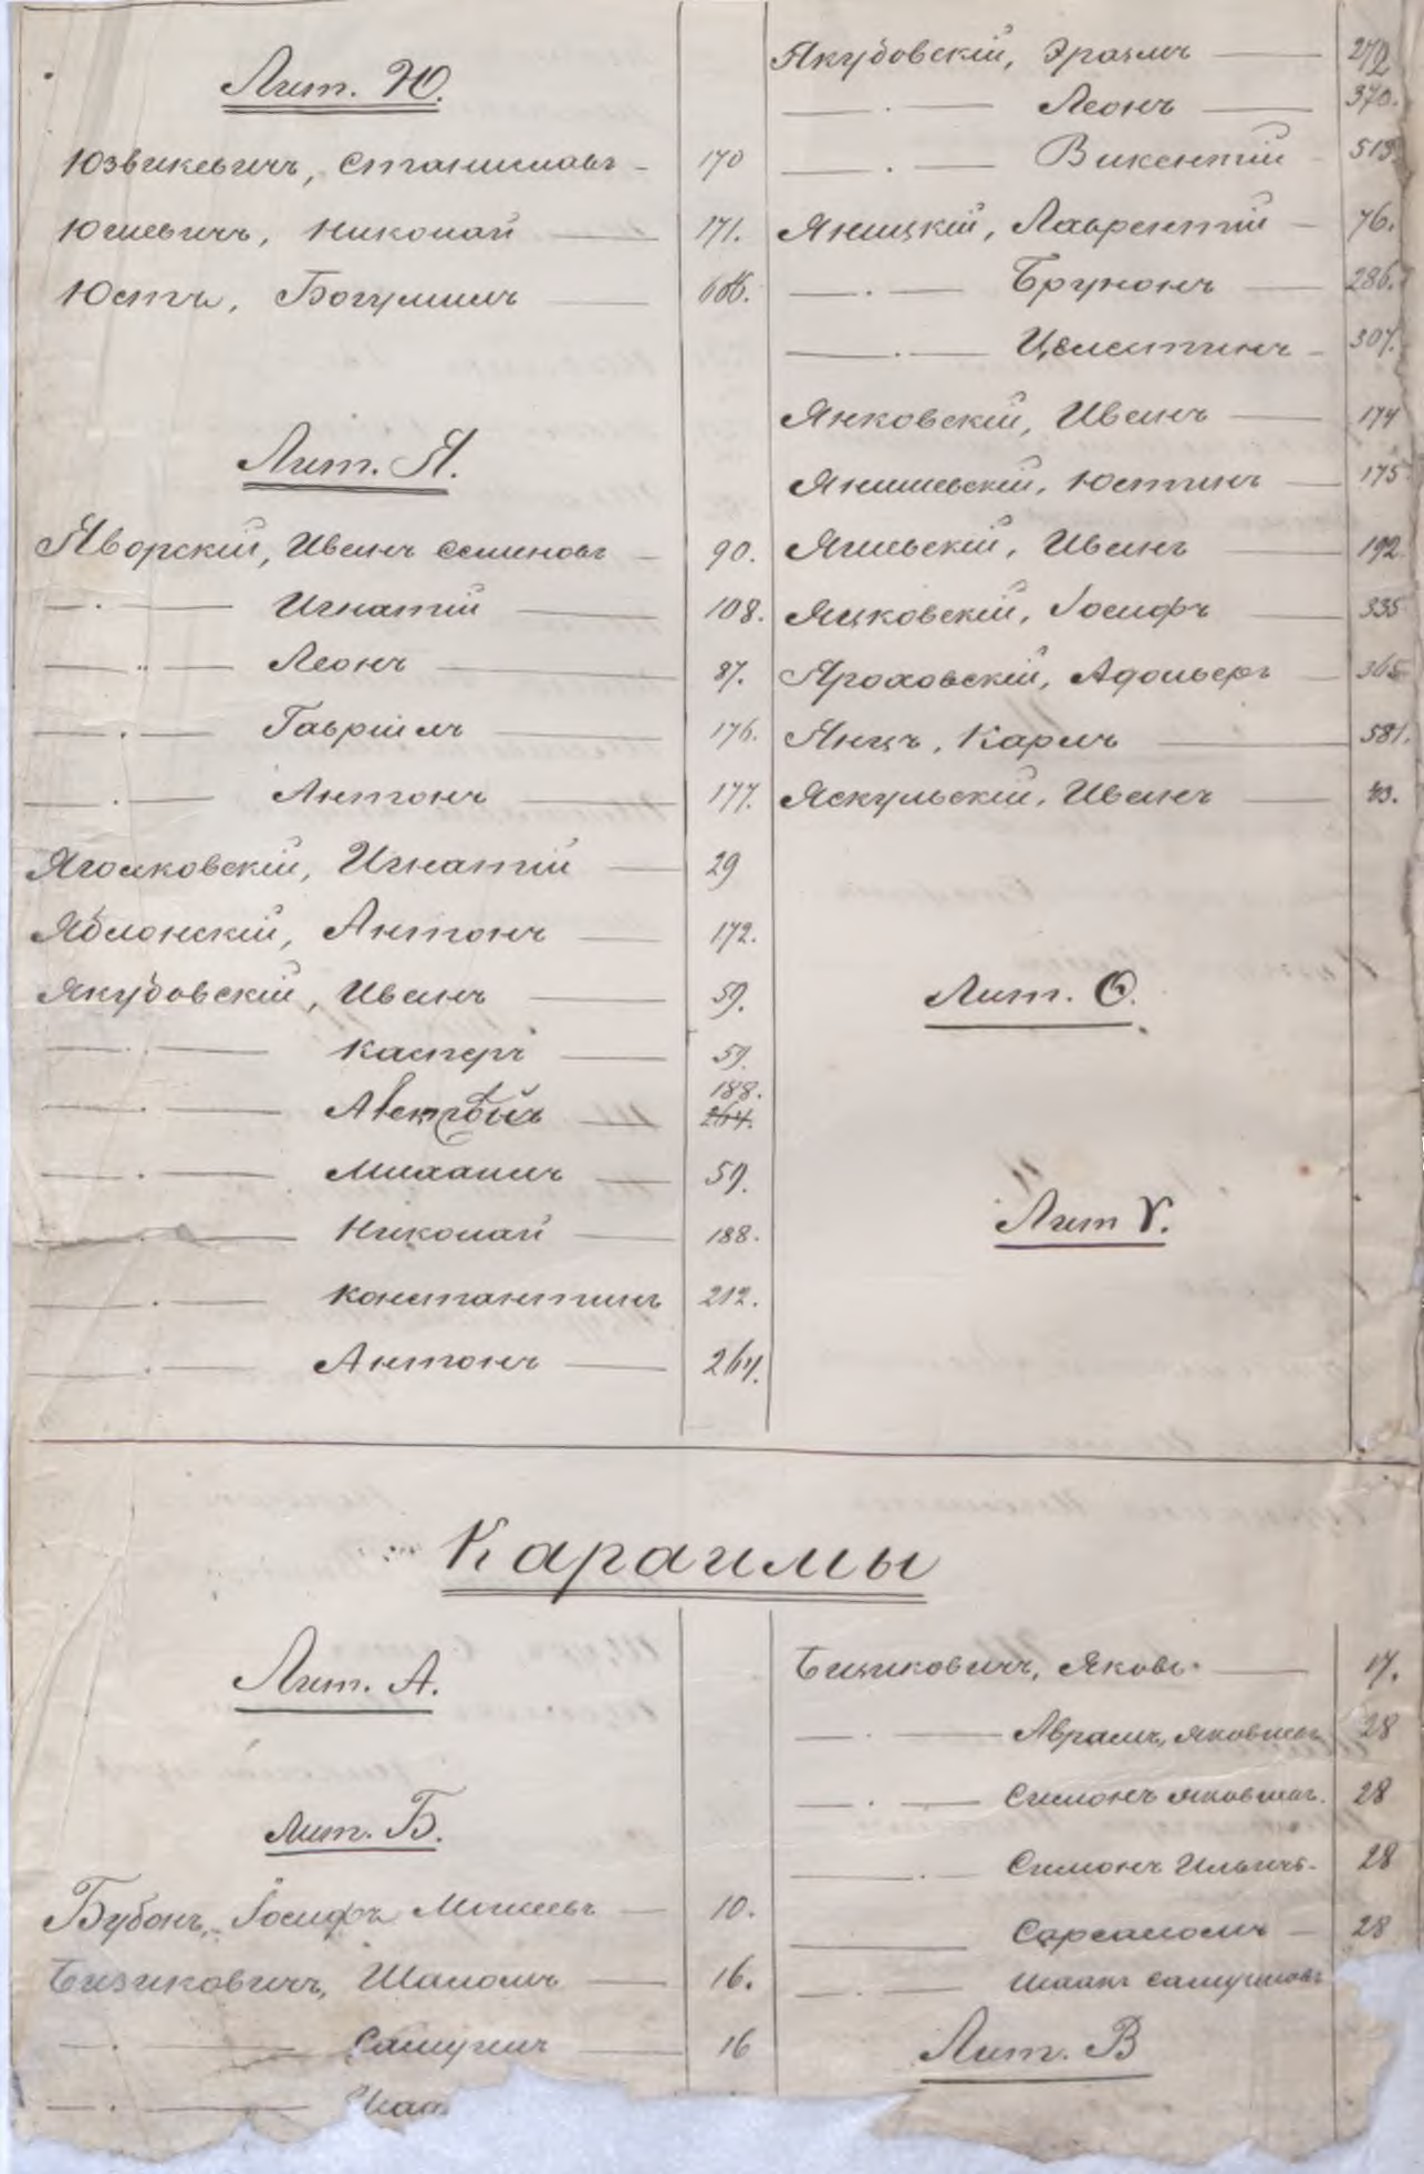 Лит. Ю.
Юзвикевичъ, Станиславъ - 170
Юшевичъ, Николай 171.
Юстъ, Богумилъ
Лит. Я.
Яворскій, Иванъ Семеновъ - 90.
— . — Игнатій 108.
— „ — Леонъ 87.
— . — Гавріилъ 176.
— . — Антонъ 177.
Яголковскій, Игнатій 29
Яблонскій, Антонъ 172.
Якубовскій, Иванъ 59.
— . — Касперъ 59.
— . — 188.
264.
— . — Михаилъ 59.
— . — Николай 188.
— . — Константинъ 212.
— . — Антонъ 264.
Якубовскій, Эразмъ 272
— . — Леонъ 370.
— . — Викентій 513.
Яницкій, Лаврентій 76.
— . — Брунонъ 286.
— . — Целестинъ 307.
Янковскій, Иванъ 174
Янишевскій, Юстинъ 175
Ягшевскій, Иванъ 192.
Яцковскій, Іосифъ 335
Яроховскій, Адольфъ 365
Янцъ, Карлъ 581.
Яскульскій, Иванъ 43.
Лит. Ѳ.
Лит Ѵ.
Караимы
Лит. А.
Лит. Б.
Бубонъ, Іосифъ Мошеевъ 10.
Бизиковичъ, Шаломъ 16.
— . — Самуилъ 16
— . — Исаа
Бизиковичъ, Яковъ 17.
— . — Аврамъ, Яковлевъ 28
— . — Симонъ Яковлевъ. 28
— . — Симонъ Ильичъ. 28
— Сарсаломъ 28
— . — Исаакъ Самуиловъ
Лит. В